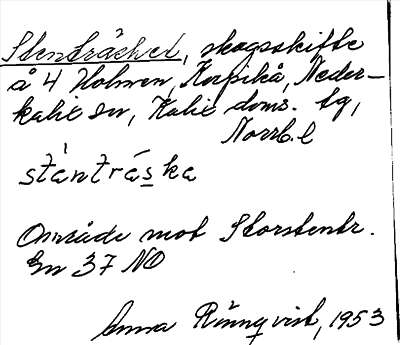 Stenträsket, skogsskifte
å 4 Holmen, Korpikå, Neder-
kalix sn, Kalix doms. tg,
Norrb. l
stántráska
Område mot Storstentr.
Gn 37 NO
Anna Rönnqvist, 1953